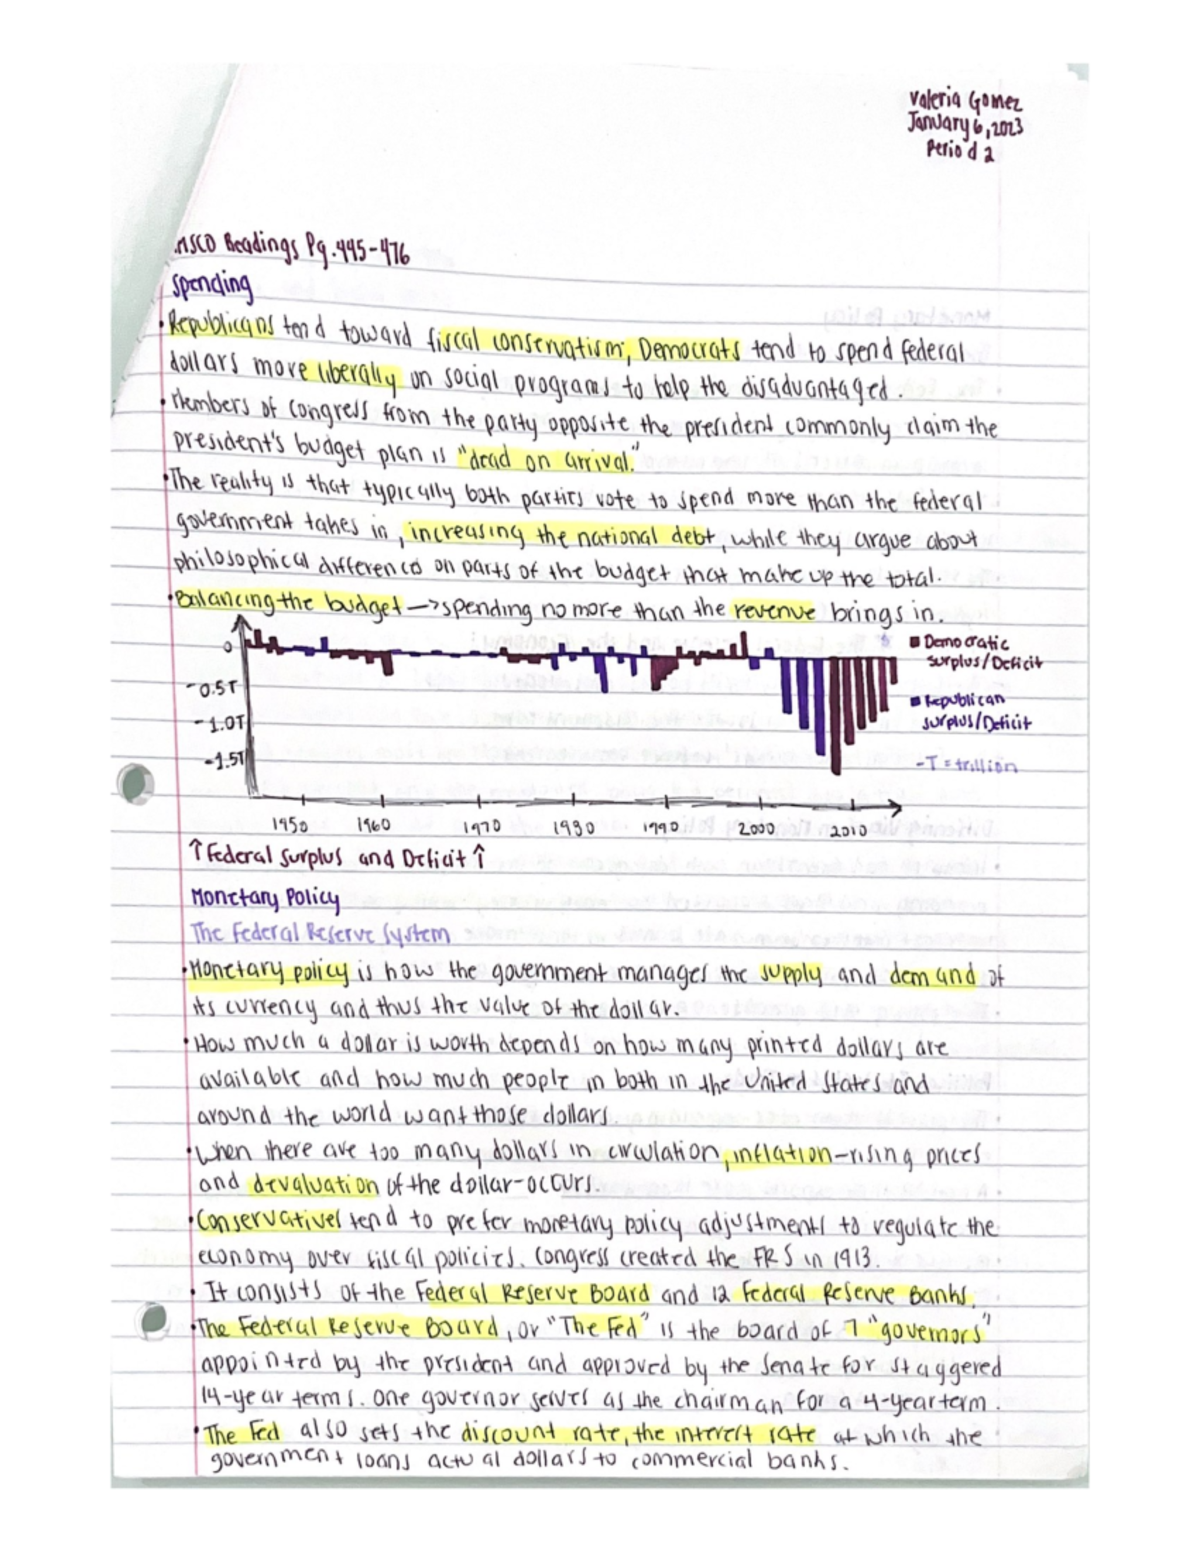 Valeria Gomez
January 6, 2023
Period 2
MSCO Readings Pg. 445-476
Spending
• Republicans tend toward fiscal conservatism, Democrats tend to spend federal
dollars more liberally on social programs to help the disadvantaged.
• Members of Congress from the party opposite the president commonly claim the
president's budget plan is "dead on arrival."
• The reality is that typically both parties vote to spend more than the federal
government takes in, increasing the national debt, while they argue about
philosophical differences on parts of the budget that make up the total.
• Balancing the budget → spending no more than the revenue brings in.
0
-0.5T
-1.0T
-1.5T
Democratic
surplus/Deficit
Republican
surplus/Deficit
-T = trillion
1950 1960 1970 1980 1990 2000 2010
↑ Federal Surplus and Deficit ↑
Monetary Policy
The Federal Reserve System
• Monetary policy is how the government manages the supply and demand of
its currency and thus the value of the dollar.
• How much a dollar is worth depends on how many printed dollars are
available and how much people in both in the United States and
around the world want those dollars.
• When there are too many dollars in circulation, inflation-rising prices
and devaluation of the dollar-occurs.
• Conservatives tend to prefer monetary policy adjustments to regulate the
economy over fiscal policies. Congress created the FRS in 1913.
• It consists of the Federal Reserve Board and 12 Federal Reserve Banks.
• The Federal Reserve Board, or "The Fed" is the board of 7 "governors"
appointed by the president and approved by the Senate for staggered
14-year terms. One governor serves as the chairman for a 4-year term.
• The Fed also sets the discount rate, the interest rate at which the
government loans actual dollars to commercial banks.